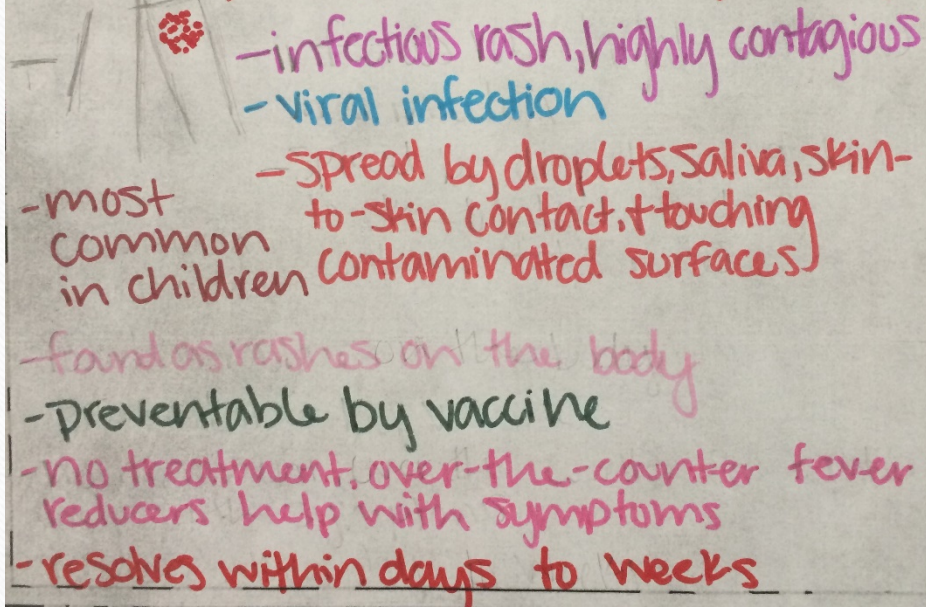 -infectious rash, highly contagious
-viral infection
-spread by droplets, saliva, skin-
to-skin contact, + touching
contaminated surfaces
-most
common
in children
-found as rashes on the body
-preventable by vaccine
-no treatment. over-the-counter fever
reducers help with symptoms
-resolves within days to weeks